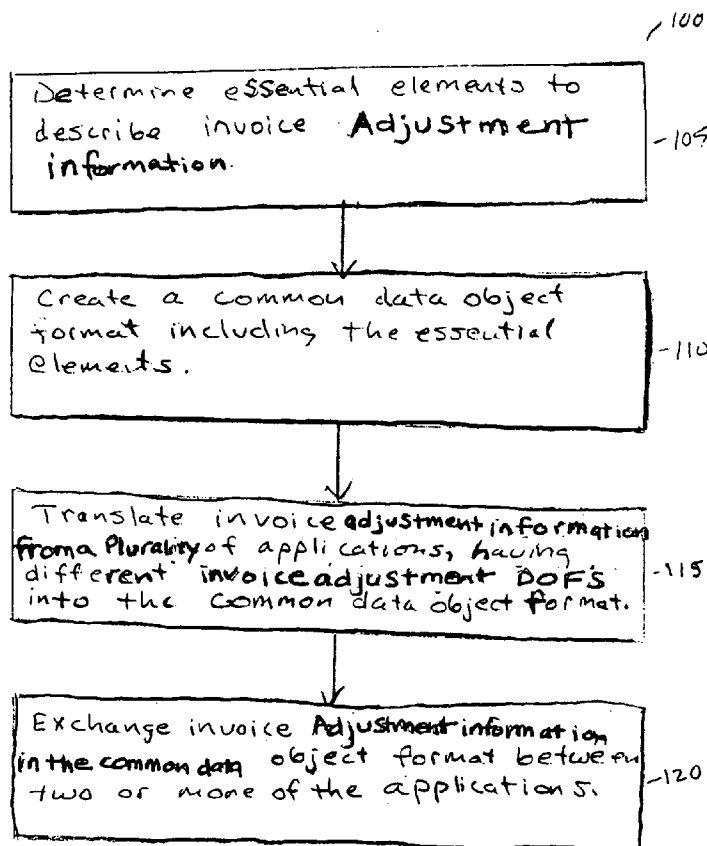 100
Determine essential elements to
describe invoice Adjustment
information.
105
Create a common data object
format including the essential
elements.
110
Translate invoice adjustment information
from a Plurality of applications, having
different invoice adjustment DOFS
into the common data object format.
115
Exchange invoice Adjustment information
in the common data object format between
two or more of the applications.
120